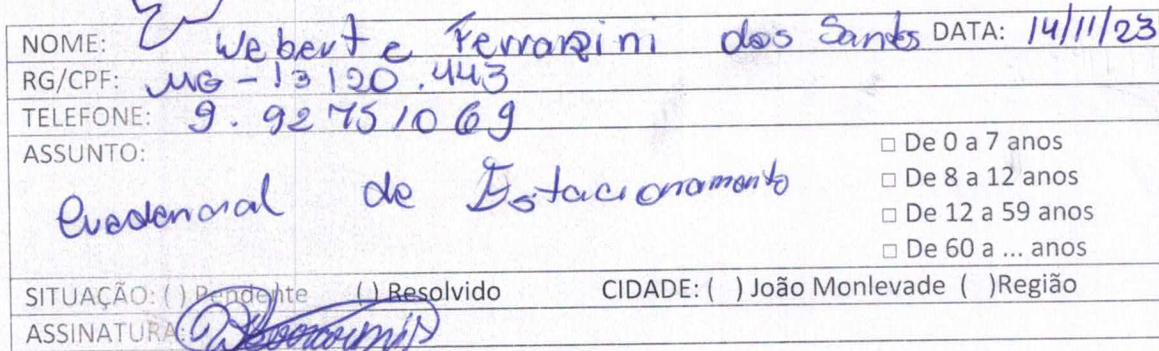 NOME: Weberte Ferrarzini dos Santos DATA: 14/11/23
RG/CPF: MG-13120.443
TELEFONE: 9.92751069
ASSUNTO:
Credencial de Estacionamento
□ De 0 a 7 anos
□ De 8 a 12 anos
□ De 12 a 59 anos
□ De 60 a ... anos
SITUAÇÃO: ( ) Pendente ( ) Resolvido CIDADE: ( ) João Monlevade ( )Região
ASSINATURA: